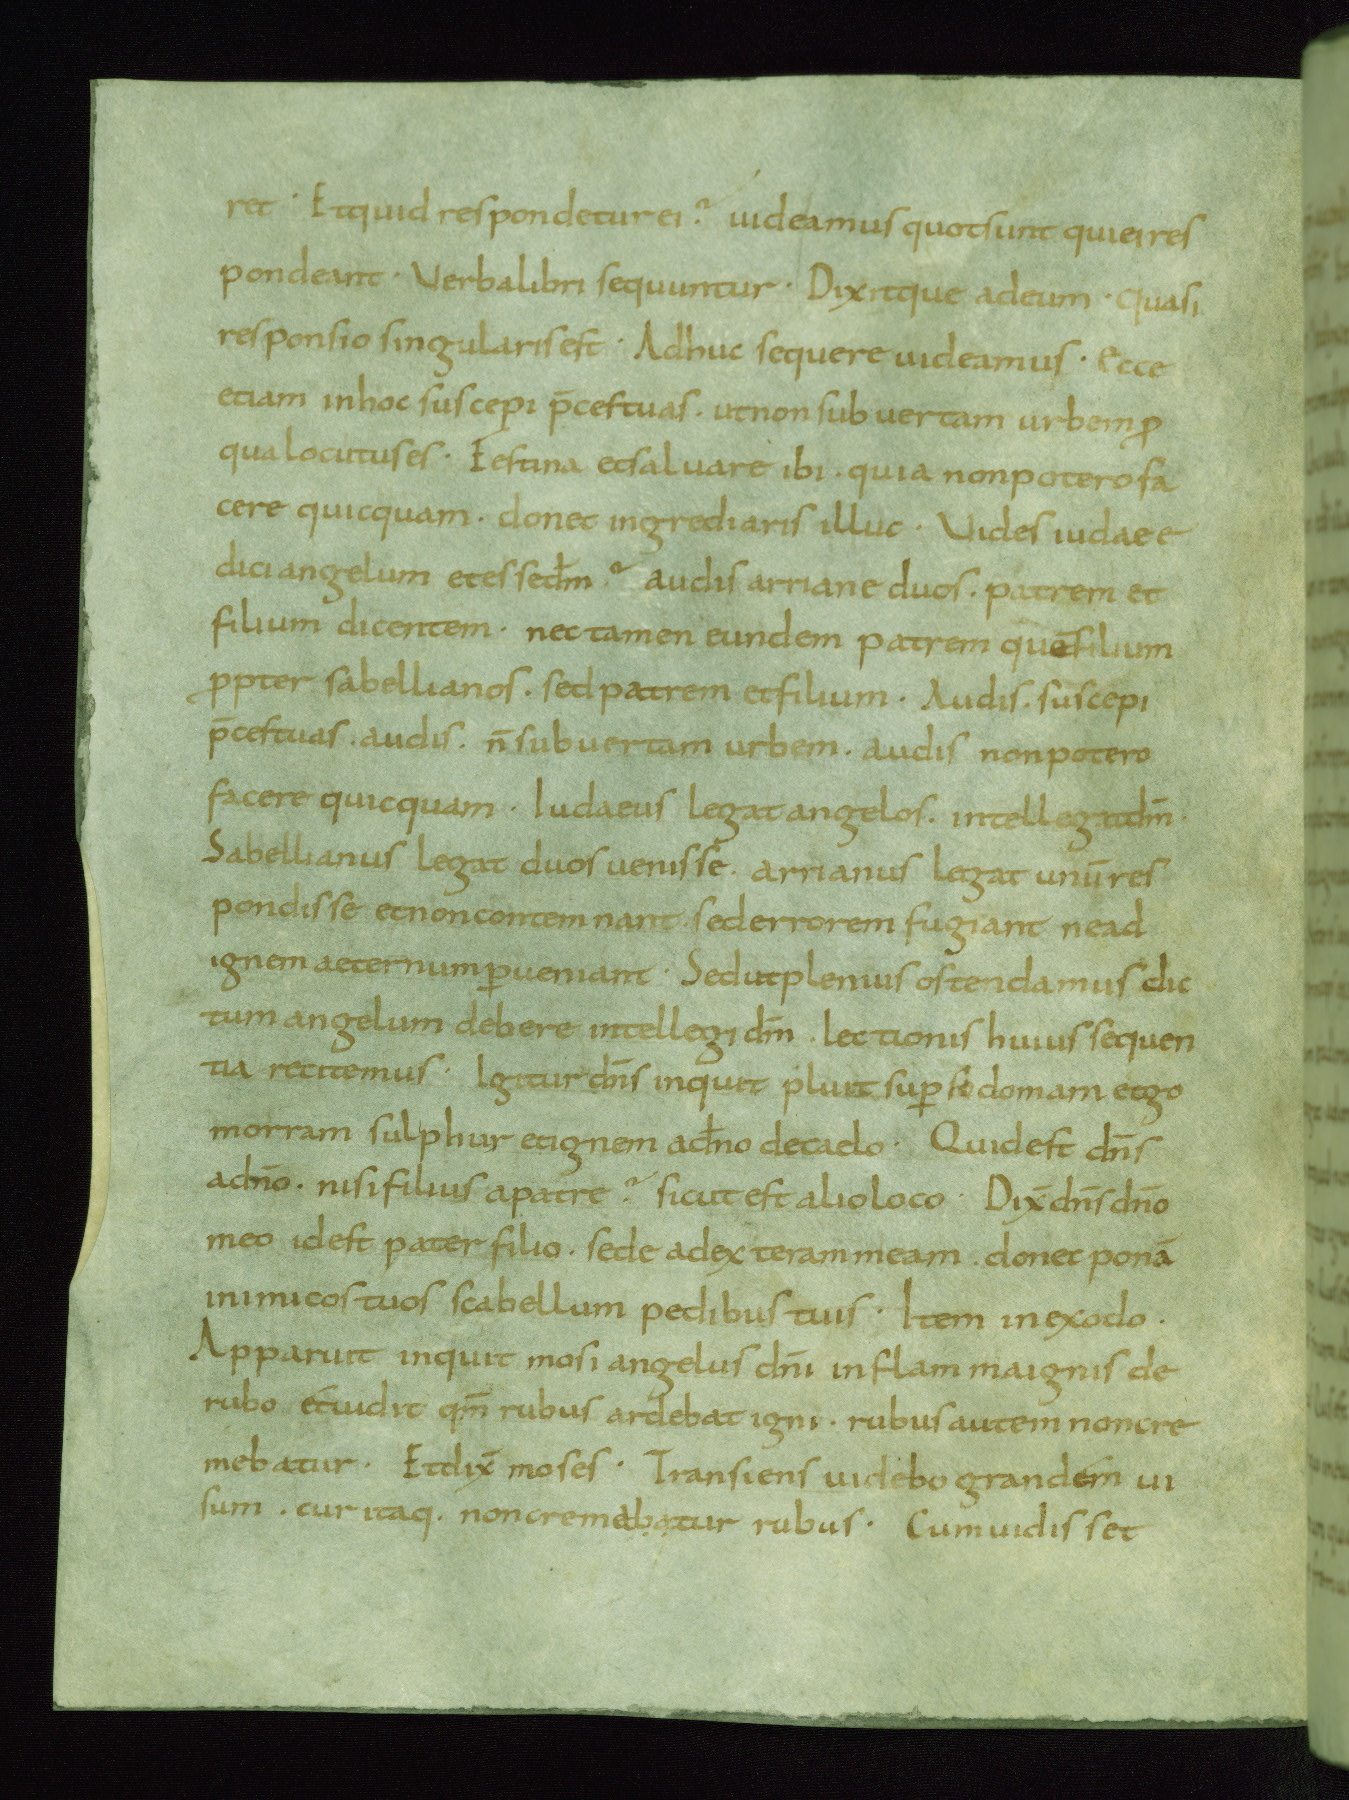 ret · Et quid respondetur ei? uideamus quot sunt qui ei res
pondeant · Verba libri sequuntur · Dixitque ad eum · quasi
responsio singularis est · Adhuc sequere uideamus · Ecce
etiam in hoc suscepi p̄ces tuas · ut non subuertam urbem ꝓ
qua locutus es · Festina et saluare ibi · quia non potero fa
cere quicquam · donec ingrediaris illuc · Vides iudaee
dici angelum et esse dm̄? audis arriane duos · patrem et
filium dicentem · nec tamen eundem patrem quē filium
ꝓpter sabellianos · sed patrem et filium · Audis · suscepi
p̄ces tuas · audis · n̄ subuertam urbem · audis non potero
facere quicquam · Iudaeus legat angelos · intellegat dm̄ ·
Sabellianus legat duos uenisse · arrianus legat unū res
pondisse et non contemnant · sed errorem fugiant ne ad
ignem aeternum ꝑueniant · Sed ut plenius ostendamus dic
tum angelum debere intellegi dm̄ · lectionis huius sequen
tia recitemus · Igitur dn̄s inquit pluit suꝑ sodomam et go
morram sulphur et ignem a dn̄o de caelo · Quid est dn̄s
a dn̄o · nisi filius a patre? sicut est alio loco · Dix̄ dn̄s dn̄o
meo id est pater filio · sede ad exteram meam · donec ponā
inimicos tuos scabellum pedibus tuis · Item in exodo ·
Apparuit inquit mosi angelus dn̄i in flamma ignis de
rubo et uidit qm̄ rubus ardebat igni · rubus autem non cre
mebatur · Et dix̄ moses · Transiens uidebo grandem ui
sum · cur itaq. non cremebatur rubus · Cum uidisset